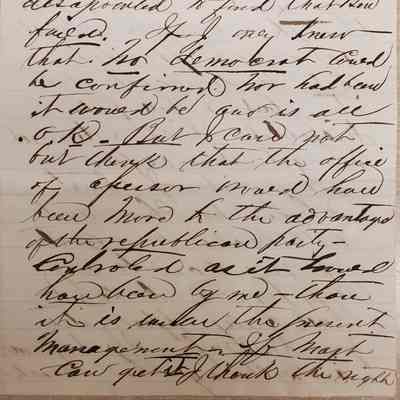 disapointed to find that
failed. If I only knew
that. No Democrat could
be confirmed. Nor had been
it would be
O K - But I can not
but think that the office
of would have
been more to the advantage
of the republican party -
Controled as it would
have been by me - than
it is under the present
management - If
can get it I think the right